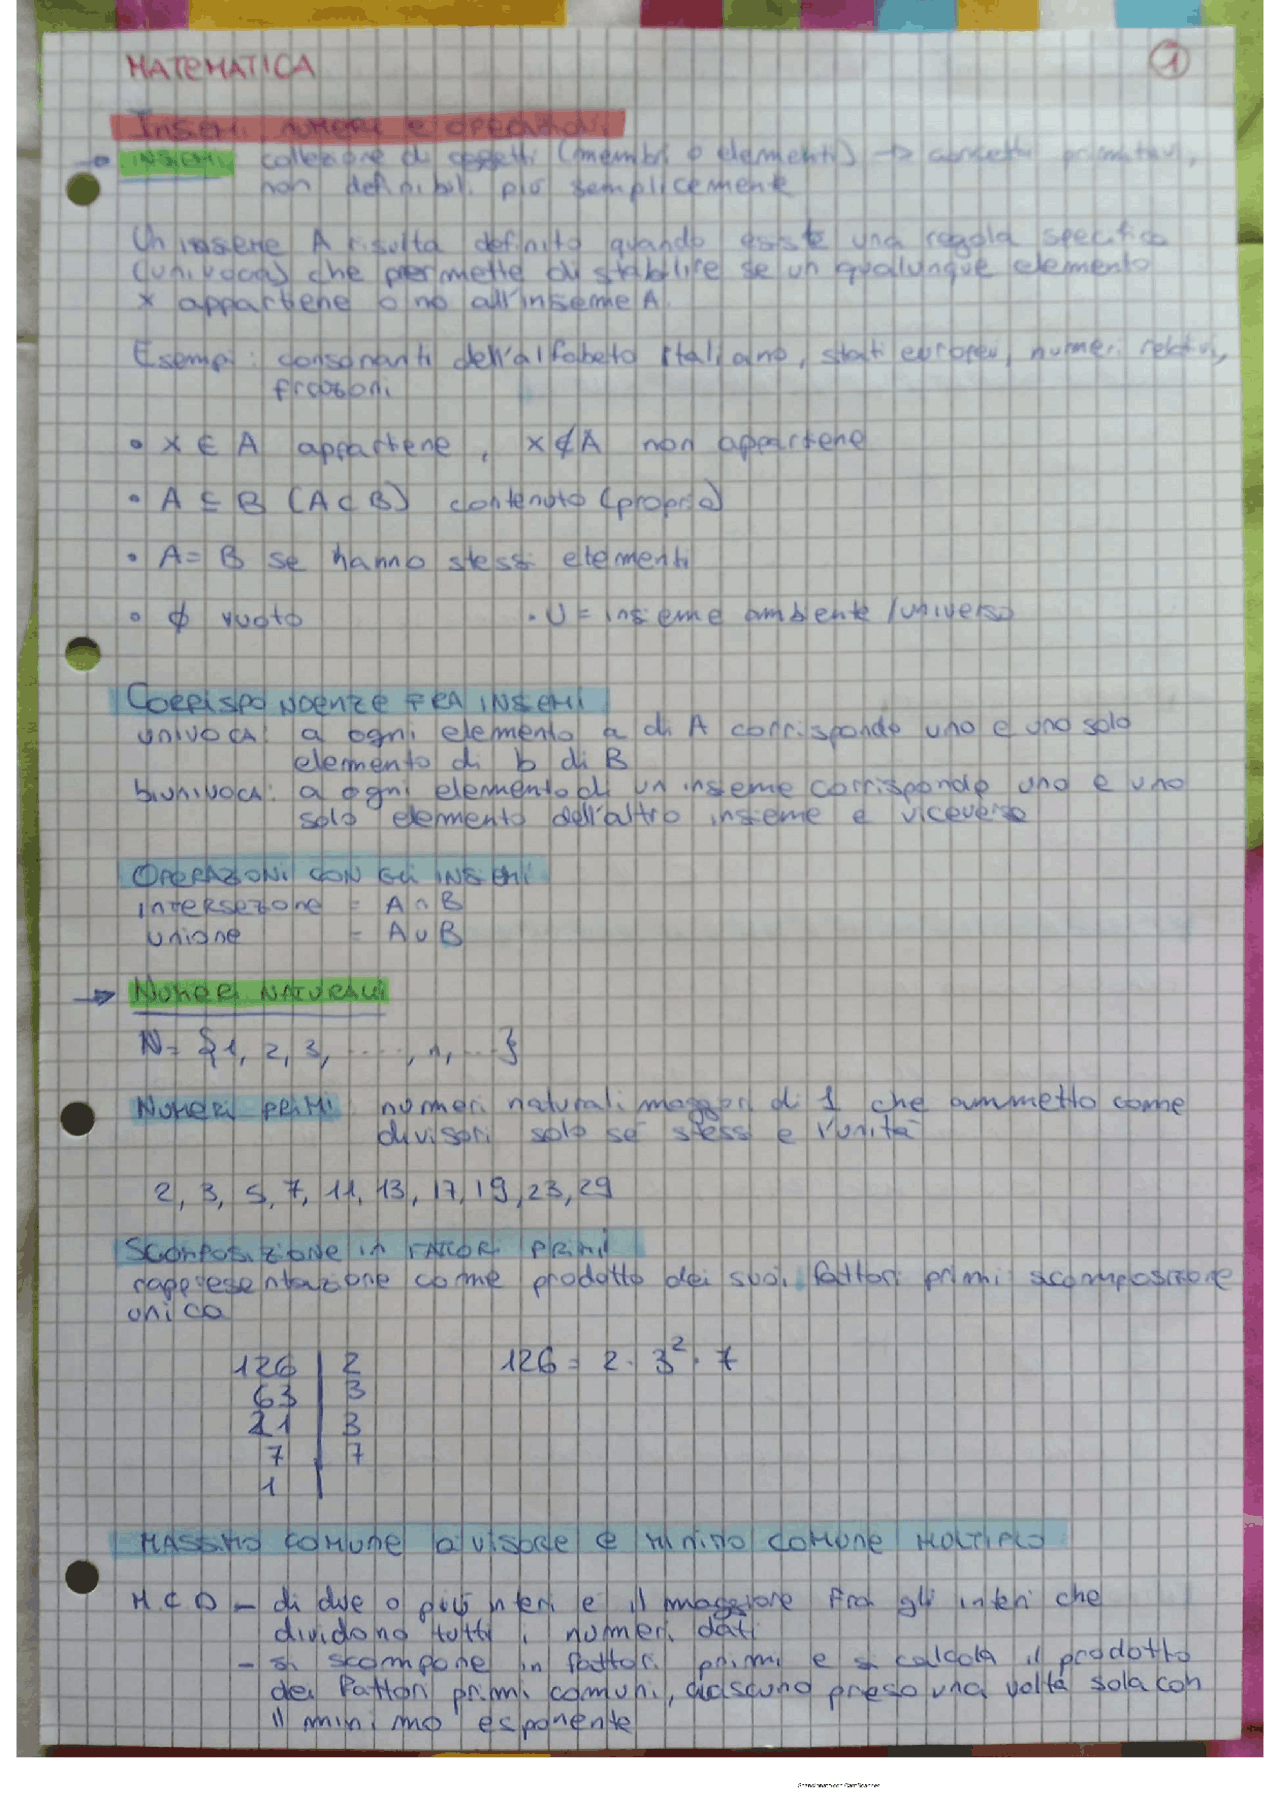 MATEMATICA
1
Insiemi numeri e operazioni
INSIEMI collezione di oggetti (membri o elementi) → concetti primitivi,
non definibili più semplicemente
Un insieme A risulta definito quando esiste una regola specifica
(univoca) che permette di stabilire se un qualunque elemento
x appartiene o no all'insieme A.
Esempi: consonanti dell'alfabeto italiano, stati europei, numeri relativi,
frazioni
• x ∈ A appartiene, x ∉ A non appartiene
• A ⊆ B (A ⊂ B) contenuto (proprio)
• A = B se hanno stessi elementi
• ∅ vuoto • U = insieme ambiente / universo
CORRISPONDENZE FRA INSIEMI
UNIVOCA: a ogni elemento a di A corrisponde uno e uno solo
elemento di b di B
BIUNIVOCA: a ogni elemento di un insieme corrisponde uno e uno
solo elemento dell'altro insieme e viceversa
OPERAZIONI CON GLI INSIEMI
intersezione = A ∩ B
unione = A ∪ B
→ NUMERI NATURALI
N = {1, 2, 3, ....., n, ...}
NUMERI PRIMI numeri naturali maggiori di 1 che ammetto come
divisori solo sé stessi e l'unità
2, 3, 5, 7, 11, 13, 17, 19, 23, 29
SCOMPOSIZIONE in FATTORI PRIMI
rappresentazione come prodotto dei suoi fattori primi scomposizione
unica
126 | 2 126 = 2 · 3² · 7
63 | 3
21 | 3
7 | 7
1 |
MASSIMO COMUNE DIVISORE E MINIMO COMUNE MULTIPLO
M C D - di due o più interi è il maggiore fra gli interi che
dividono tutti i numeri dati
- si scompone in fattori primi e si calcola il prodotto
dei fattori primi comuni, ciascuno preso una volta sola con
il minimo esponente
Scansionato con CamScanner